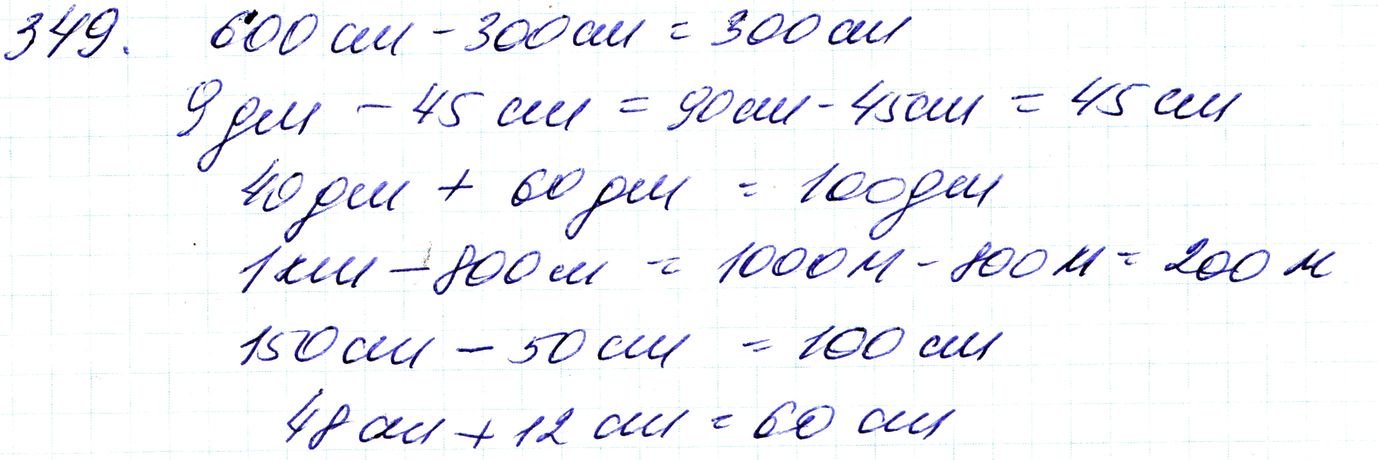 349. 600 см - 300 см = 300 см
9 дм - 45 см = 90 см - 45 см = 45 см
40 дм + 60 дм = 100 дм
1 км - 800 м = 1000 м - 800 м = 200 м
150 см - 50 см = 100 см
48 см + 12 см = 60 см